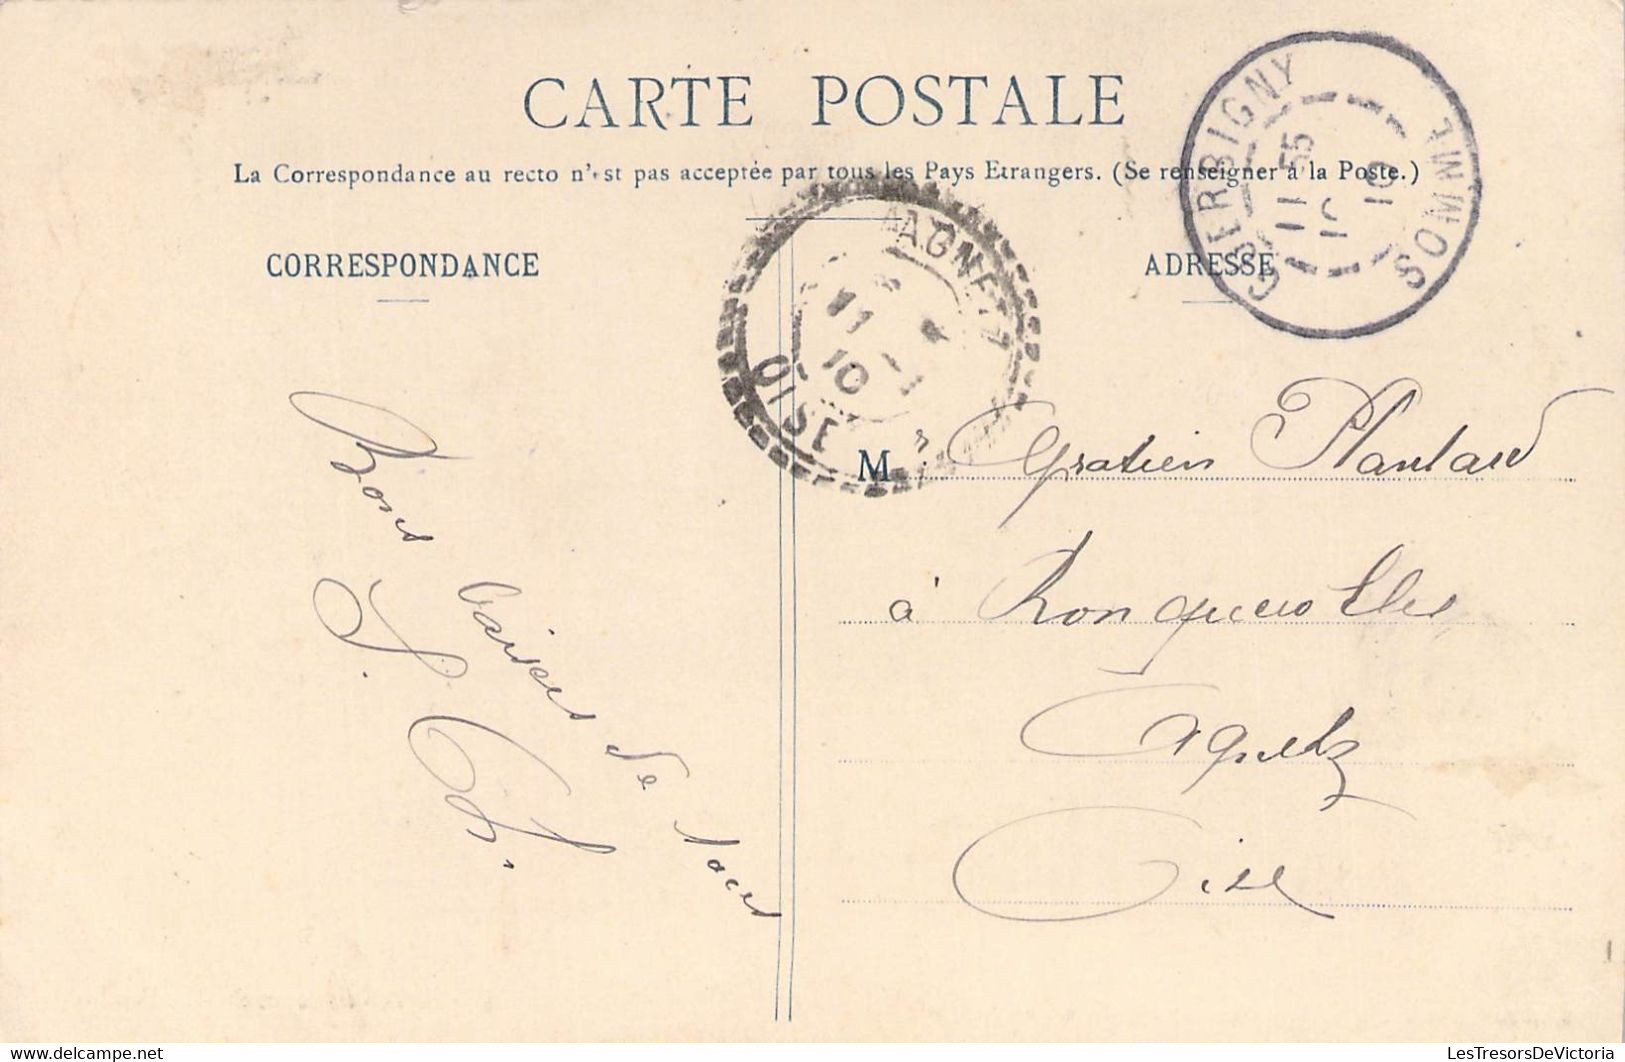 CARTE POSTALE
La Correspondance au recto n'est pas acceptée par tous les Pays Etrangers. (Se renseigner à la Poste.)
CORRESPONDANCE
ADRESSE
GUERBIGNY
SOMME
11 55
10
AGNETZ
OISE
11
10
Mr Gratien Plantard
à Ronquerolles
Agnetz
Oise
Bons baisers de nous
LesTresorsDeVictoria